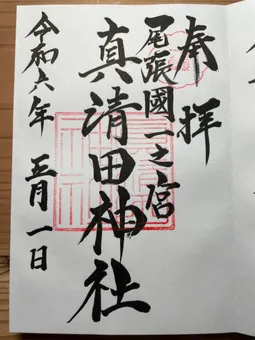 奉拝
尾張國一之宮
真清田神社
令和六年 五月一日